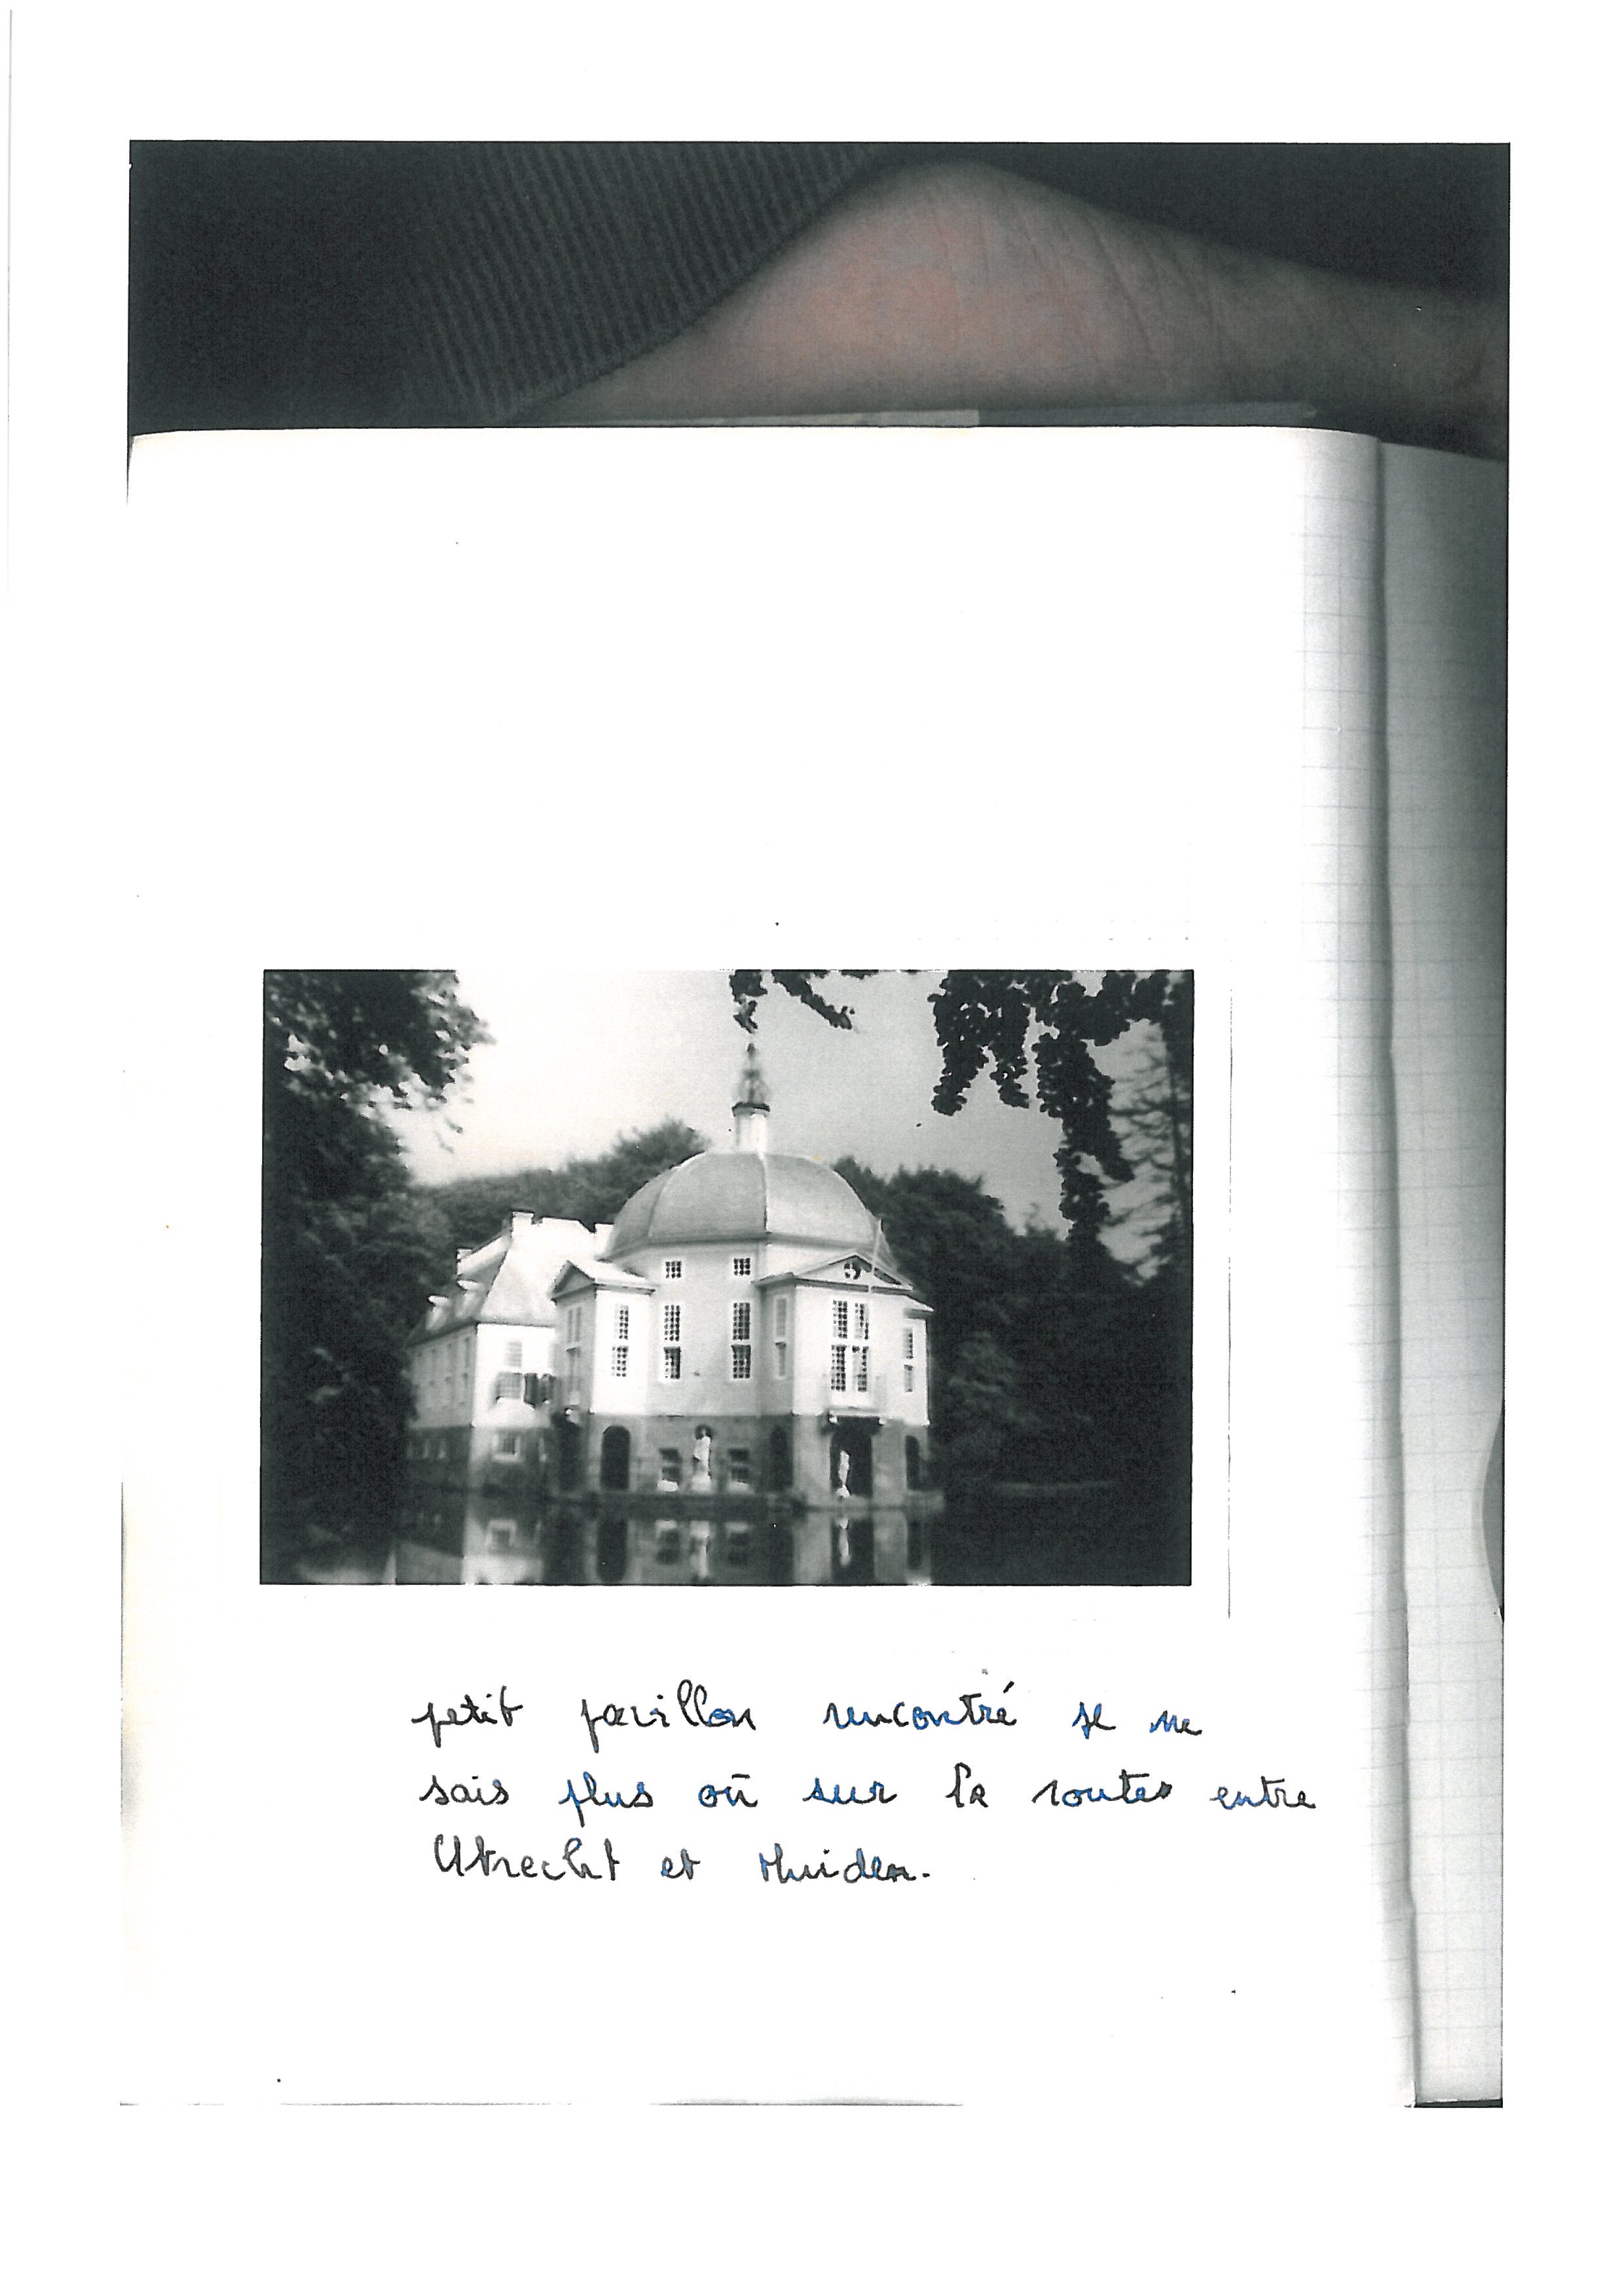 petit pavillon rencontré je ne
sais plus où sur la route entre
Utrecht et Muiden.